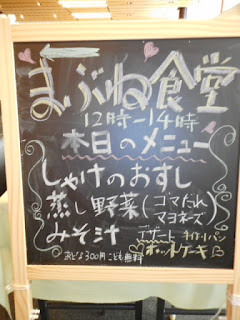 まぶね食堂
12時ー14時
本日のメニュー
しゃけのおすし
蒸し野菜(ゴマだれ
マヨネーズ)
みそ汁
デザート チョコバナナ
ホットケーキ
おとな300円こども無料